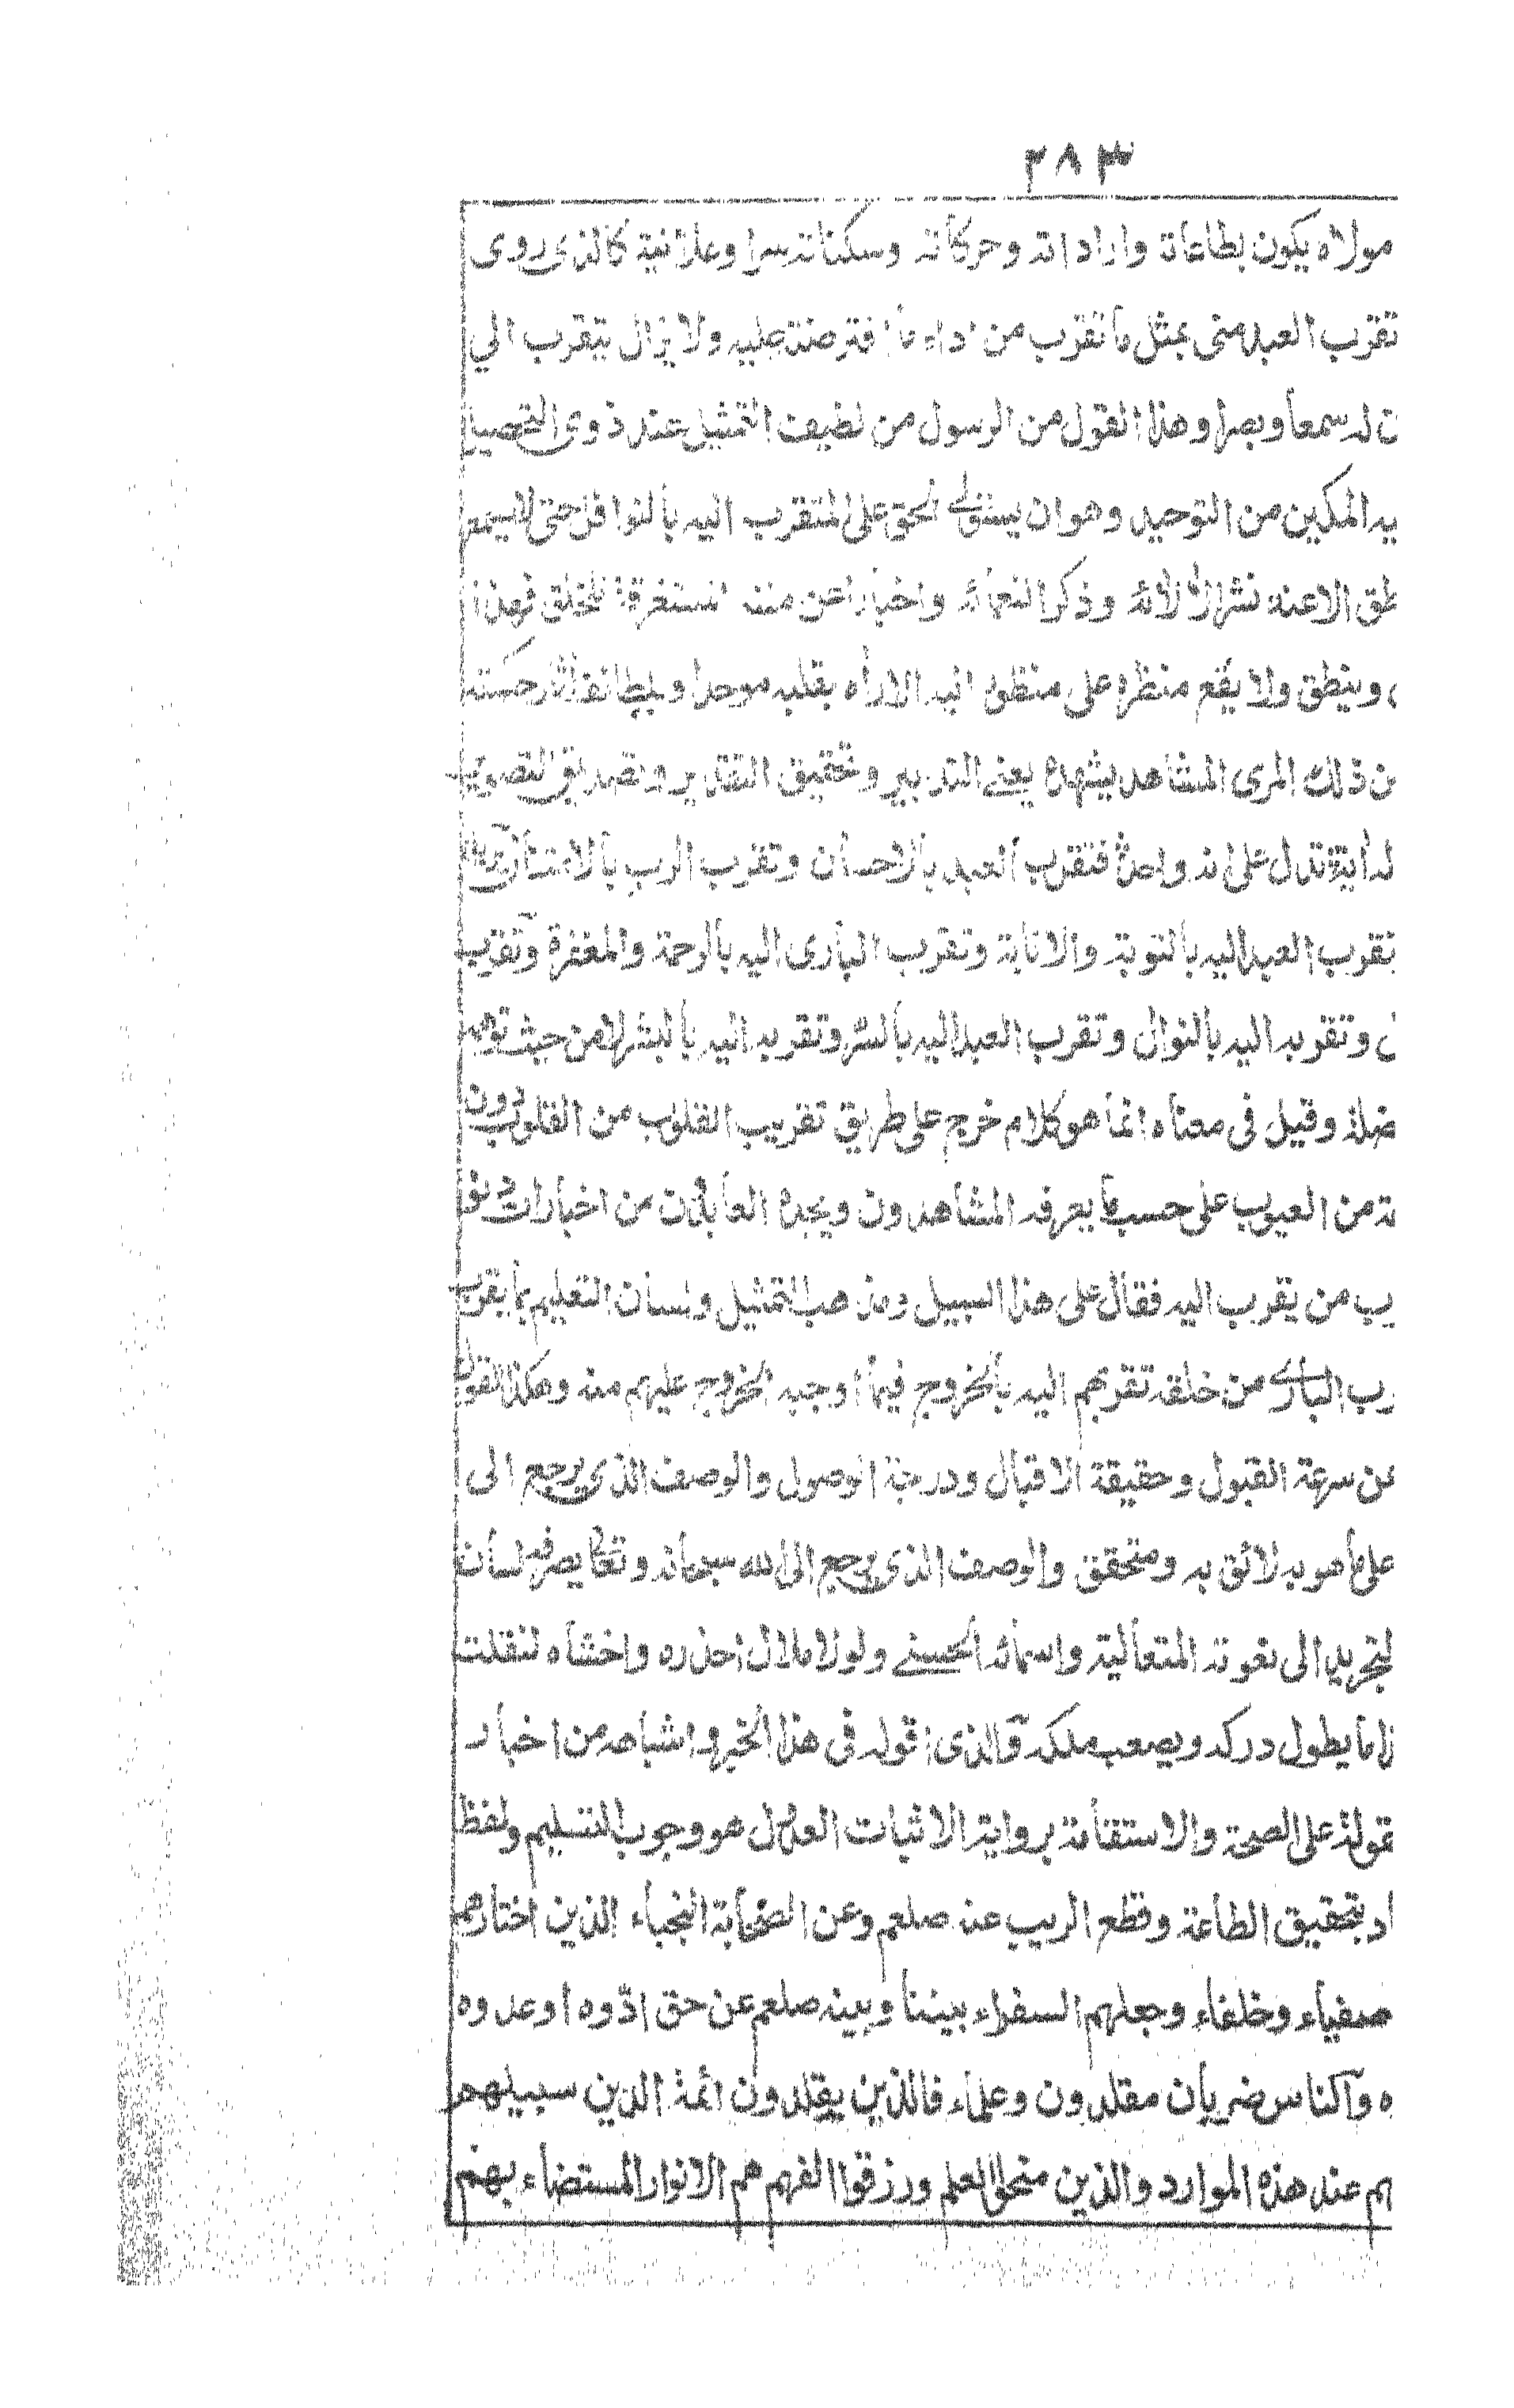 ٣٨٣
مولاه يكون بطاعاته واراداته وحركاته وسكناته سرا وعلانية كالذى روى
تقرب العبد منى بمثل ما تقرب من اداء ما افترضته عليه ولا يزال يتقرب الي
ن له سمعا وبصرا وهذا القول من الرسول من لطيف التمثيل عند ذوى التحصيل
يد المكين من التوحيد وهو ان يستولى الحق على المتقرب اليه بالنوافل حتى لا يسمع
طق الا عنه نشرا لآلائه وذكرا لنعمائه واخبارا عن منته المستغرقة للخلق فهذا
وينطق ولا يقع منظره على منظور اليه الا رأه بقلبه موحدا وبلطائف آثار حكمته
ن ذلك المرى المشاهد يشهده يعنى التدبير وتحقيق التقدير وتصديق التصوير
له آية تدل على انه واحد فتقرب العبد بالاحسان وتقرب الرب بالامتنان
تقرب العبد اليه بالتوبة والانابة وتقرب البارى اليه بالرحمة والمغفرة وتقرب
وتقربه اليه بالنوال وتقرب العبد اليه بالسر وتقربه اليه بالبشر لا من حيث توهمه
ضلة وقيل فى معناه انما هو كلام خرج على طريق تقريب القلوب من القلوب دون
ته من العيوب على حسب ما يعرفه المشاهدون ويجده العابدون من اخبارات
رب من يقرب اليه فقال على هذا السبيل ومذهب التمثيل ولسان التعليم بما يقرب
رب البارى من خلقه تقربهم اليه بالخروج فيما اوجبه الخروج عليهم منه وهكذا القول
عن سرعة القبول وحقيقة الاقبال ودرجة الوصول والوصف الذى يرجع الى
على ما هو به لائق به ومتحقق والوصف الذى يرجع الى الله سبحانه وتعالى يصرفه لسان
لتجريد الى نعوته المتعالية واسمائه الحسنى ولولا ملال احذره واخشاه لنقلت
لا ما يطول دركه ويصعب ملكه والذى اقوله فى هذا الخبر واشباهه من اخبار
نقولة على الصحة والاستقامة برواية الاثبات العدول هو وجوب التسليم ولفظ
اد بتحقيق الطاعة وقطع الريب عنه صلعم وعن الصحابة النجباء الذين اختارهم
صفياء وخلفاء وجعلهم السفراء بيننا وبينه صلعم عن حق ادّوه او عدوه
ه والناس ضربان مقلدون وعلماء فالذين يقلدون ائمة الدين سبيلهم
هم عند هذه الموارد والذين منحوا العلم ورزقوا الفهم هم الانوار المستضاء بهم